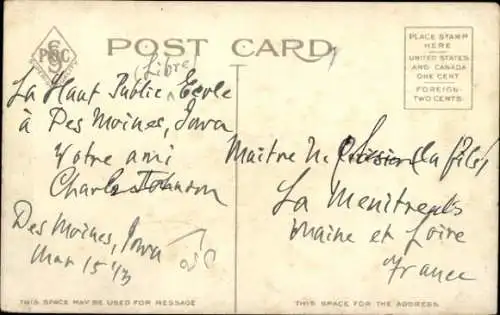 POST CARD
PLACE STAMP
HERE
UNITED STATES
AND CANADA
ONE CENT
FOREIGN
TWO CENTS
(Libre)
La Haut Public Ecole
à Des Moines, Iowa
Votre ami
Charles Johnson
Des Moines, Iowa
Mar 15
Maitre (la fils)
La Menitre
Maine et Loire
France
THIS SPACE MAY BE USED FOR MESSAGE
THIS SPACE FOR THE ADDRESS